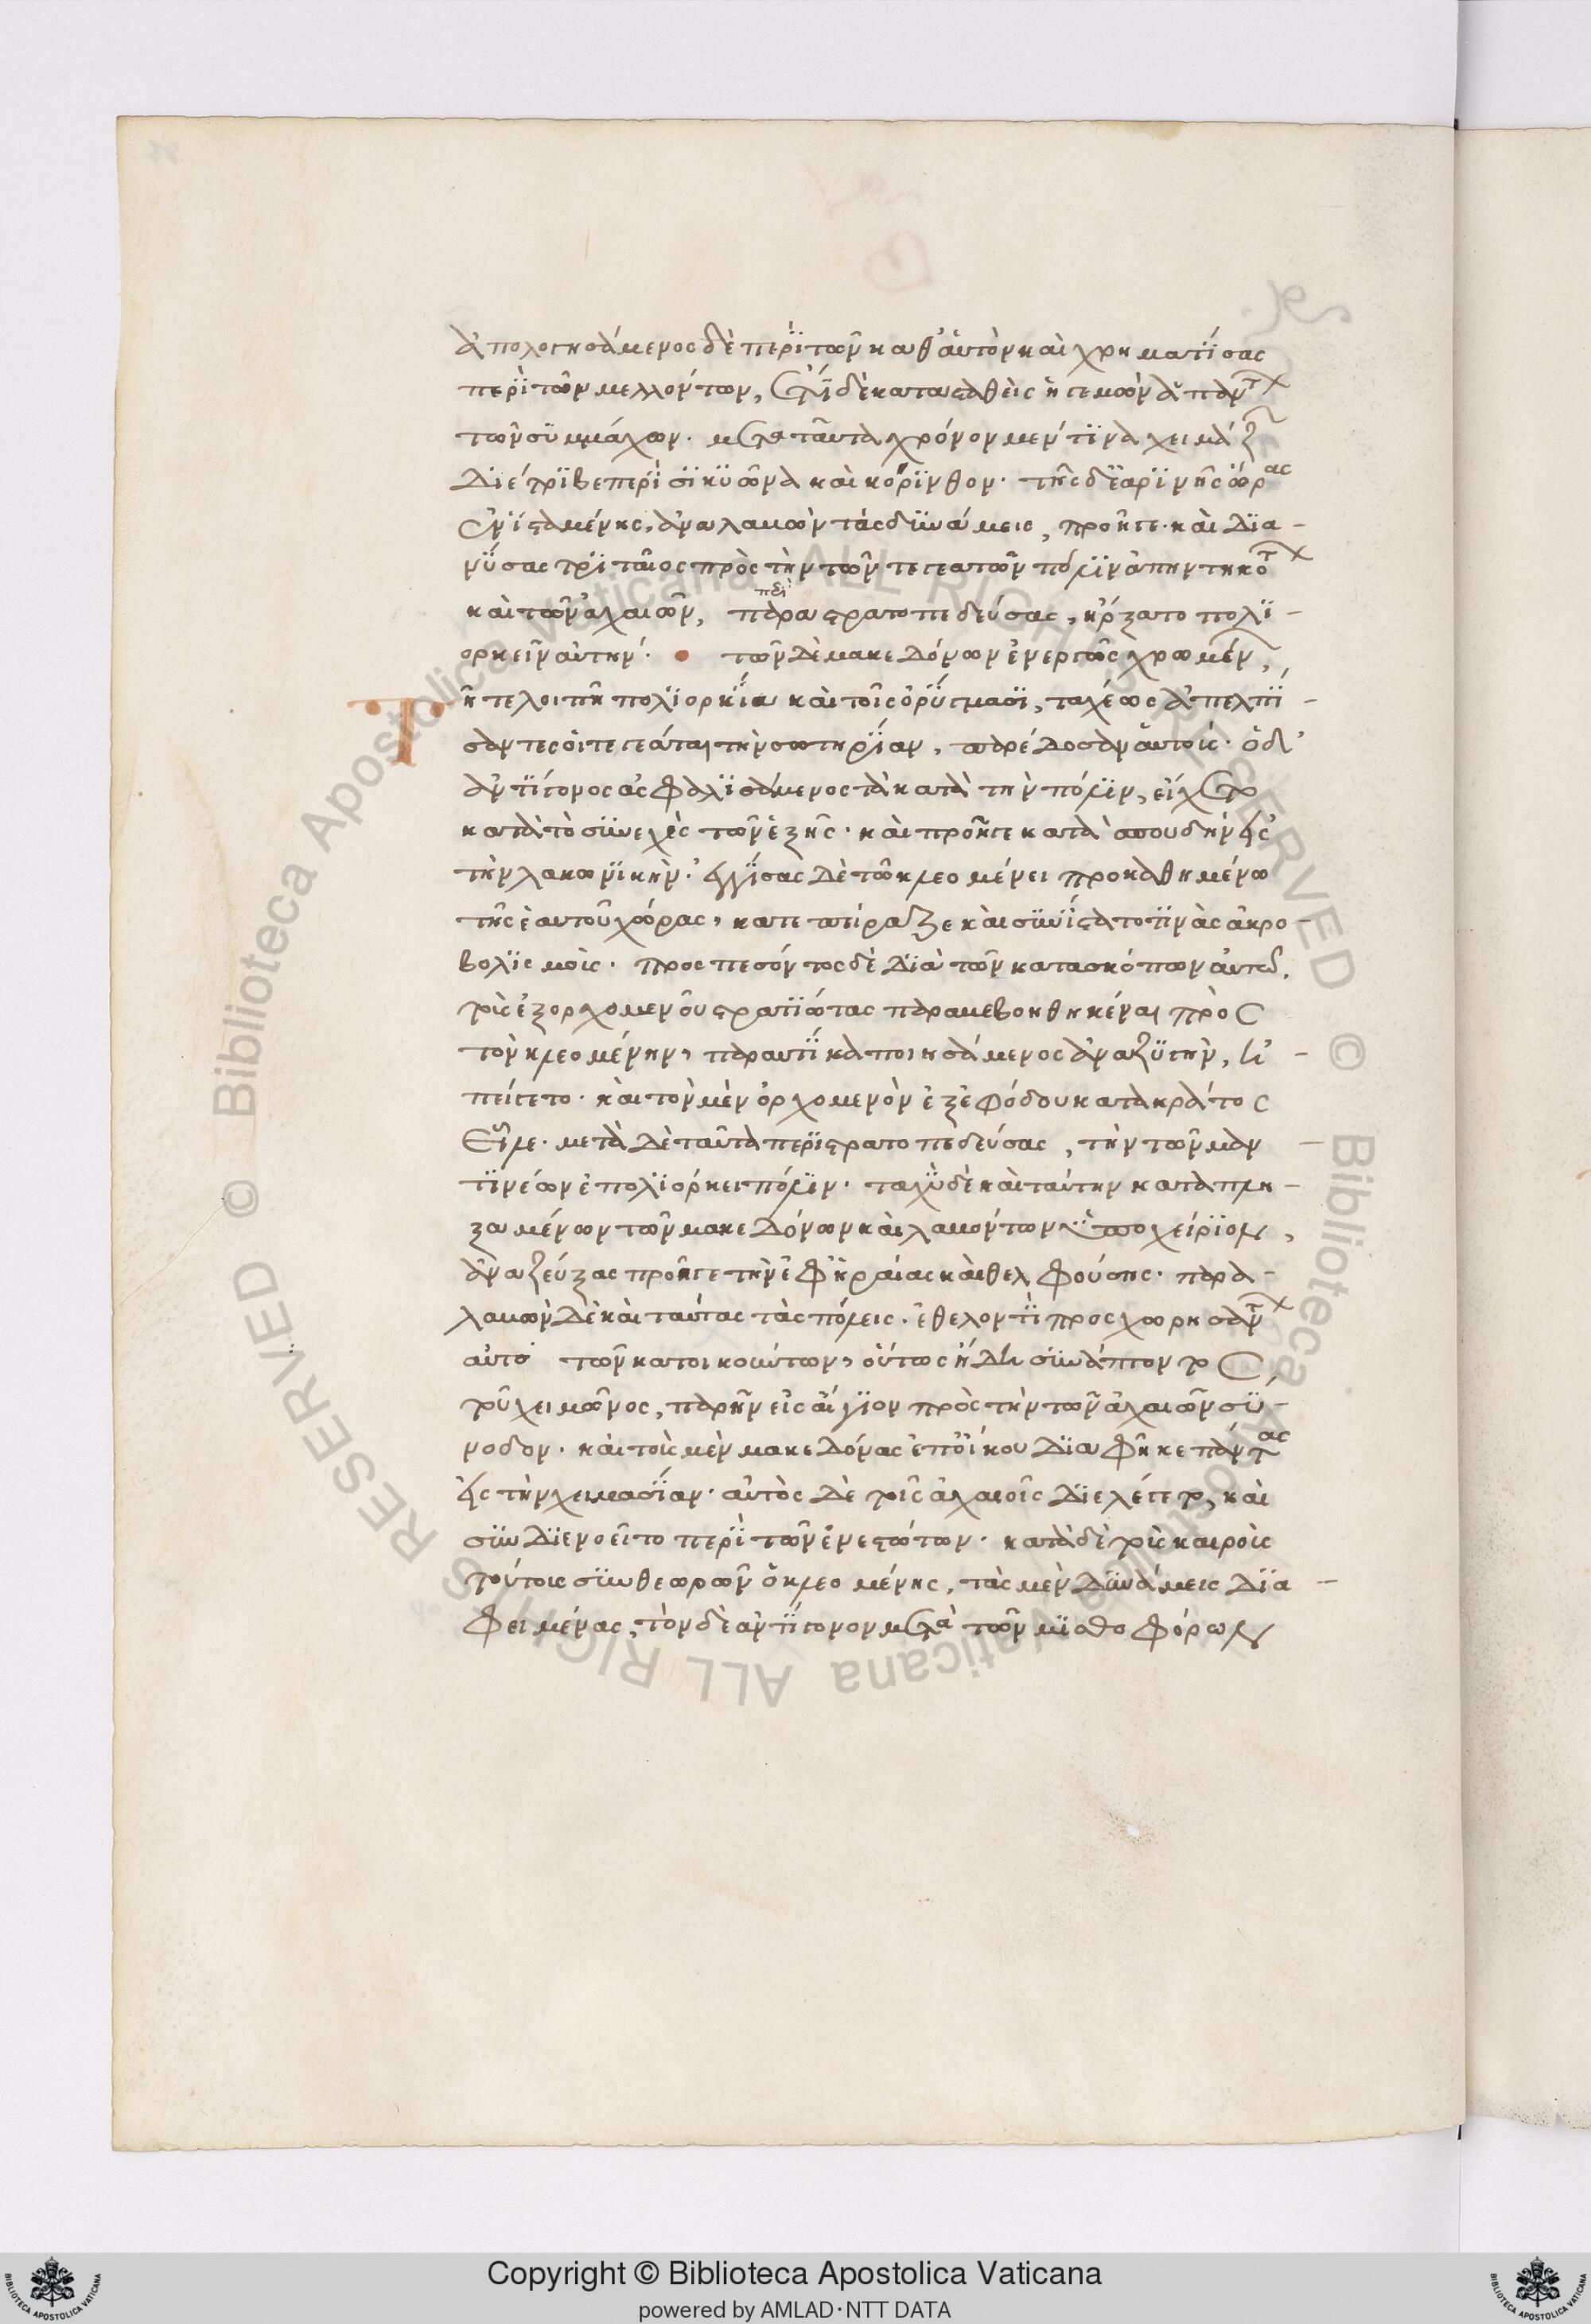 ἀπολογησάμενος δὲ περὶ τῶν καθ' αὑτὸν καὶ χρηματίσας
περὶ τῶν μελλόντων, ἔτι δὲ κατασταθεὶς ἡγεμὼν ἁπάντ
τῶν συμμάχων. μετὰ ταῦτα χρόνον μέν τινα χειμάζ
διέτριβε περὶ σικυῶνα καὶ κόρινθον. τῆς δὲ ἐαρινῆς ὥρας
ἐνισταμένης, ἀναλαβὼν τὰς δυνάμεις, προῆγε. καὶ δια-
νύσας τριταῖος πρὸς τὴν τῶν τεγεατῶν πόλιν ἀπηντηκότ
καὶ τῶν ἀχαιῶν, παραστρατοπεδεύσας, ἤρξατο πολι-
περι
ορκεῖν αὐτήν. τῶν δὲ μακεδόνων ἐνεργῶς χρωμέν
τῆ τε λοιπῆ πολιορκία καὶ τοῖς ὀρύγμασι, ταχέως ἀπελπί-
σαντες οἱ τεγεάται τὴν σωτηρίαν, παρέδοσαν αὑτούς. ὁ δ'
ἀντίγονος ἀσφαλισάμενος τὰ κατὰ τὴν πόλιν, εἴχετο
κατὰ τὸ συνεχὲς τῶν ἑξῆς. καὶ προῆγε κατὰ σπουδὴν εἰς
τὴν λακωνικήν. ἐγγίσας δὲ τῶ κλεομένει προκαθημένω
τῆς ἑαυτοῦ χώρας, κατεπείραζε καὶ συνίστατο τινὰς ἀκρο-
βολισμούς. προσπεσόντος δὲ διὰ τῶν κατασκόπων αὐτῶ,
τοὺς ἐξ ορχομενοῦ στρατιώτας παραβεβοηθηκέναι πρὸς
τὸν κλεομένην, παραυτίκα ποιησάμενος ἀναζυγὴν, ἠ-
πείγετο. καὶ τὸν μὲν ὀρχομενὸν ἐξ ἐφόδου κατὰ κράτος
εἷλε. μετὰ δὲ ταῦτα περιστρατοπεδεύσας, τὴν τῶν μαν-
τινέων ἐπολιόρκει πόλιν. ταχὺ δὲ καὶ ταύτην καταπλη-
ξαμένων τῶν μακεδόνων καὶ λαβόντων ὑποχείριον,
ἀναζεύξας προῆγε τὴν ἐφ' ἡραίας καὶ θελφούσης. παρα-
λαβὼν δὲ καὶ ταύτας τὰς πόλεις. ἐθελοντὶ προσχωρησάντ
αὐτῶ τῶν κατοικούντων, οὕτως ἤδη συνάπτοντος
τοῦ χειμῶνος, παρῆν εἰς αἴγιον πρὸς τὴν τῶν ἀχαιῶν σύ-
νοδον. καὶ τοὺς μὲν μακεδόνας ἐπ' οἴκου διαφῆκε πάντας
εἰς τὴν χειμασίαν. αὐτὸς δὲ τοῖς ἀχαιοῖς διελέγετο, καὶ
συνδιενοεῖτο περὶ τῶν ἐνεστώτων. κατὰ δὲ τοὺς καιροὺς
τούτους συνθεωρῶν ὁ κλεομένης, τὰς μὲν δυνάμεις δια-
φειμένας, τὸν δὲ ἀντίγονον μετὰ τῶν μισθοφόρων
Copyright © Biblioteca Apostolica Vaticana
powered by AMLAD·NTT DATA